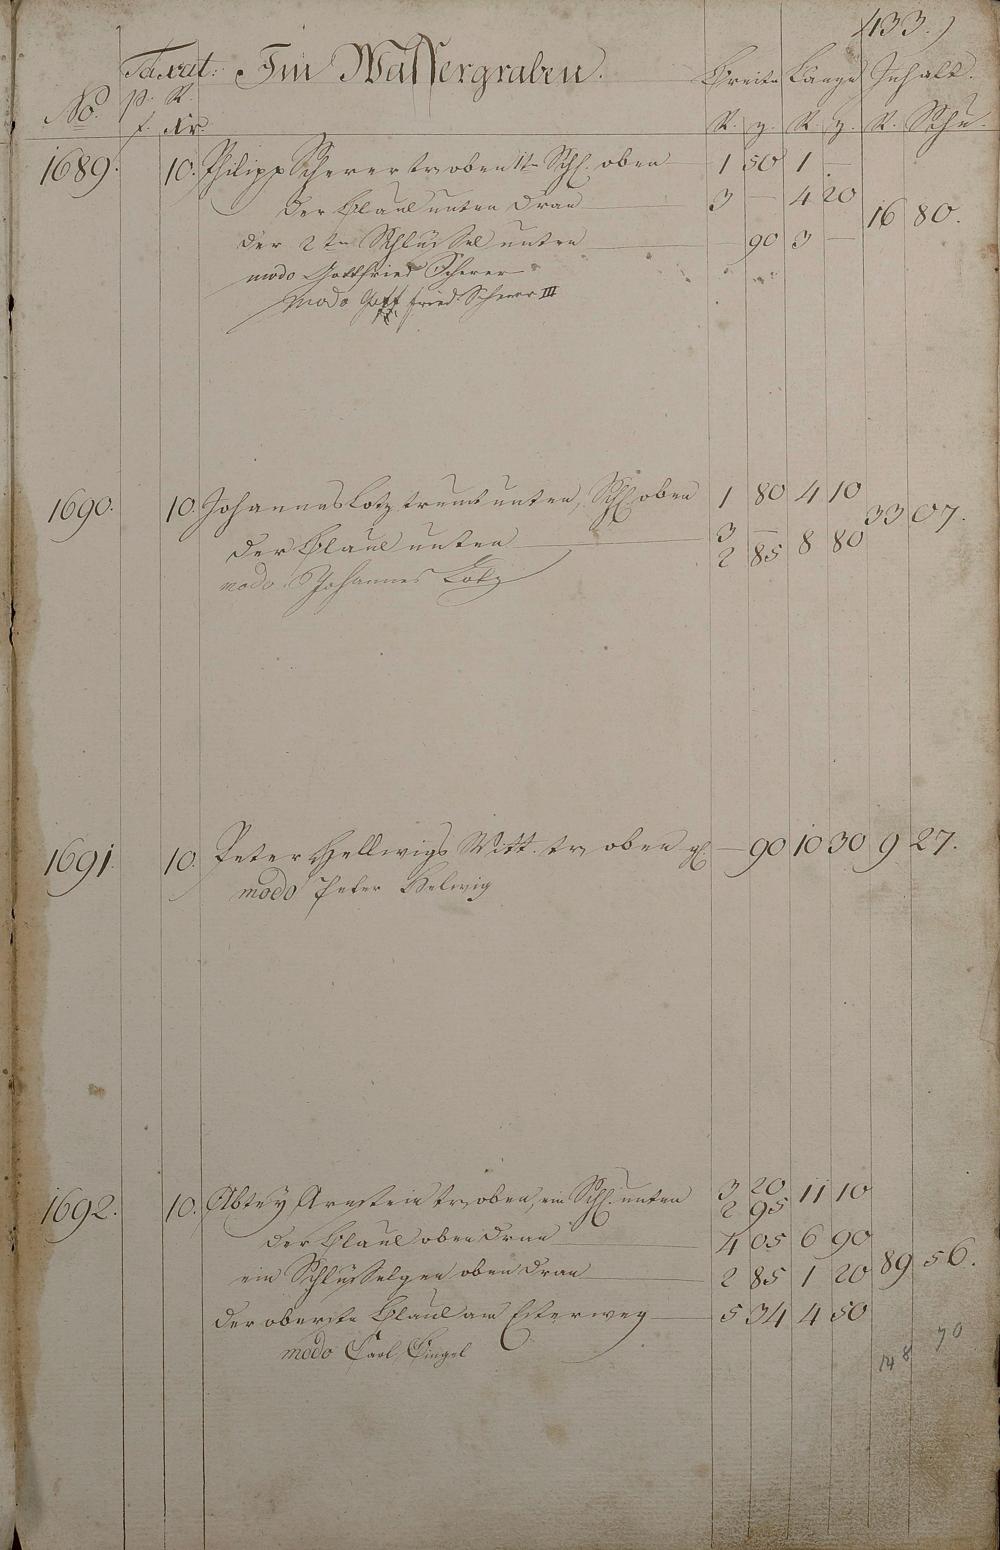 433.)
Taxat: Im Wassergraben. Breite Länge Inhalt.
No. p. R. f. Xr. R. z. R. z. R. Schu.
1689. 10. Philipp Scherer tr. oben 1te Schl. oben 1 50 1 —
der Plaul unten dran 3 — 4 20 16 80.
der 2te Schlüssel unten — 90 3 —
modo Gottfried Scherer
modo Gottfried Scherer III
1690. 10. Johannes Lotz trent unten, Schl. oben 1 80 4 10 33 07.
der Plaul unten 3 — 2 85 8 80
modo Johannes Lotz
1691. 10. Peter Hellwigs Witt. tr. oben — 90 10 30 9 27.
modo Peter Helwig
1692. 10. Abtey Arnstein tr. oben, ein Schl. unten 3 20 2 95 11 10
der Plaul oben dran 4 05 6 90
ein Schlüsselgen oben dran 2 85 1 20 89 56.
der oberste Plaul am Esterweg 5 34 4 50
modo Carl Singel
148 70